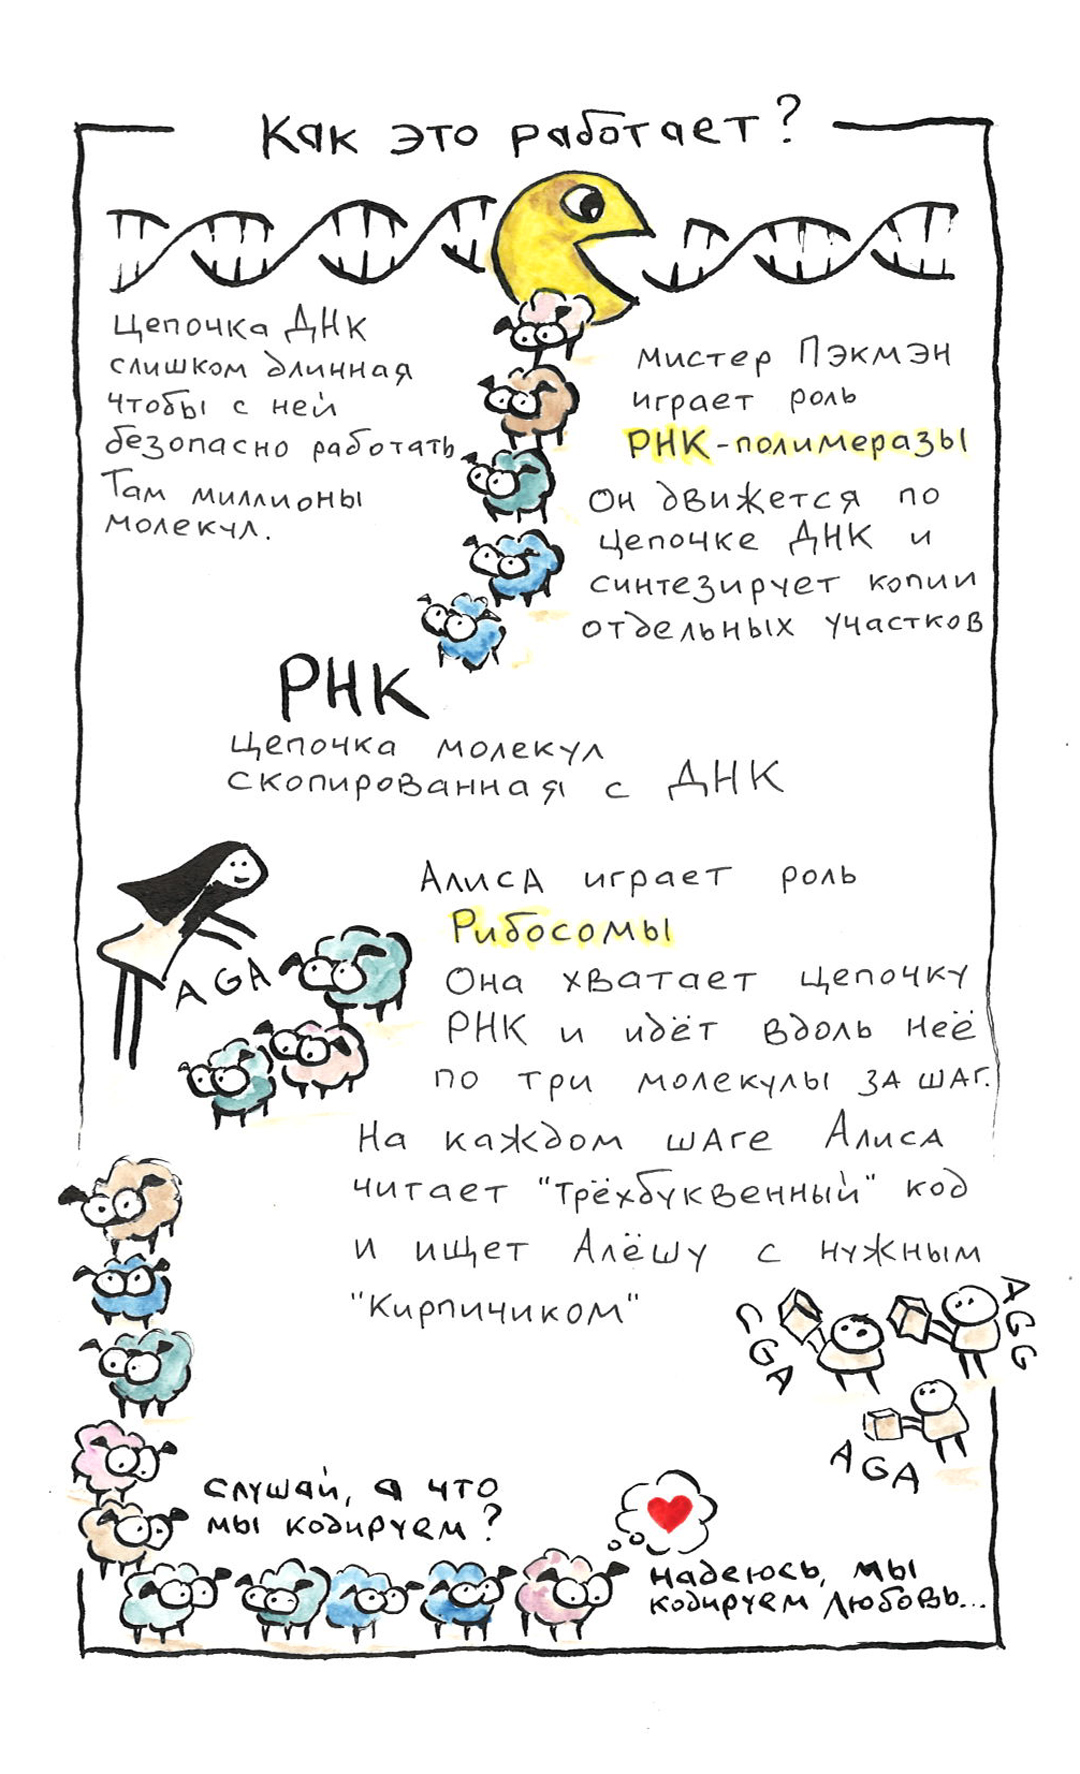 Как это работает?
Цепочка ДНК
слишком длинная
чтобы с ней
безопасно работать
Там миллионы
молекул.
мистер Пэкмэн
играет роль
РНК-полимеразы
Он движется по
цепочке ДНК и
синтезирует копии
отдельных участков
РНК
Цепочка молекул
скопированная с ДНК
Алиса играет роль
Рибосомы
Она хватает цепочку
РНК и идёт вдоль неё
по три молекулы за шаг.
AGA
На каждом шаге Алиса
читает "трёхбуквенный" код
и ищет Алёшу с нужным
"Кирпичиком"
CGA
AGG
AGA
слушай, а что
мы кодируем?
надеюсь, мы
кодируем любовь...